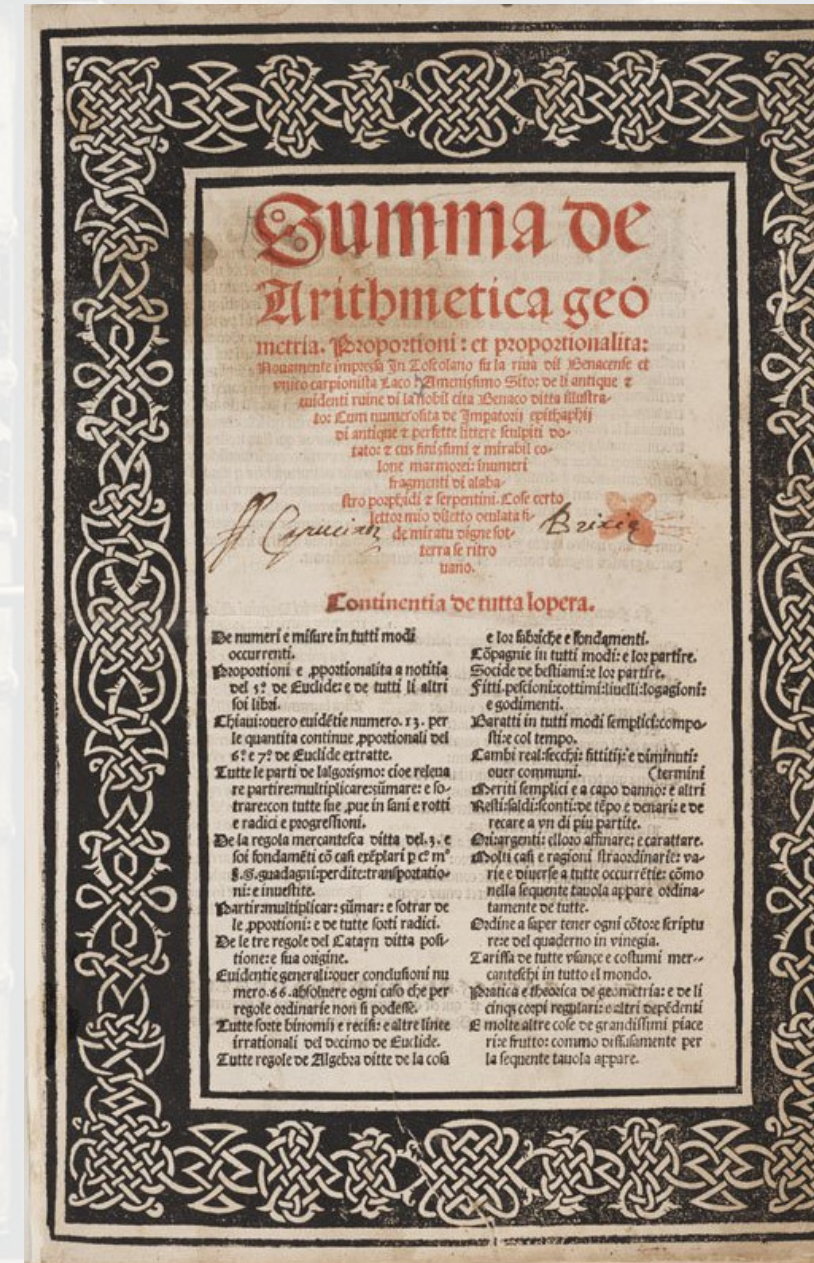 Summa de
Arithmetica geo
metria. Proportioni: et proportionalita:
Nouamente impressa In Toscolano su la riua dil Benacense et
vnico carpionista Laco: Amenissimo Sito: de li antique ⁊
euidenti ruine di la nobil cita Benaco ditta illustra-
to: Cum numerosita de Impatorij epithaphij
di antique ⁊ perfette littere sculpiti do-
tato: ⁊ cus finissimi ⁊ mirabil co-
lone marmorei: inumeri
fragmenti di alaba-
stro porphidi ⁊ serpentini. Cose certo
lettor mio diletto oculata fi-
de miratu digne sot-
terra se ritro
uano.
Brixię
Continentia de tutta lopera.
De numeri e misure in tutti modi
occurrenti.
Proportioni e ꝓportionalita a notitia
del 5º de Euclide: e de tutti li altri
soi libri.
Chiaui: ouero euidētie numero. 13. per
le quantita continue ꝓportionali del
6º e 7º de Euclide extratte.
Tutte le parti de lalgorismo: cioe releua
re partire: multiplicare: sūmare: e so-
trare: con tutte sue ꝓue in sani e rotti
e radici e progressioni.
De la regola mercantesca ditta del .3. e
soi fondamēti cō casi exēplari ꝑ cº mº
§. G. guadagni: perdite: transportatio-
ni: e inuestite.
Partir: multiplicar: sūmar: e sotrar de
le ꝓportioni: e de tutte sorti radici.
De le tre regole del Catayn ditta posi-
tione: e sua origine.
Euidentie generali: ouer conclusioni nu
mero .66. absoluere ogni caso che per
regole ordinarie non si podesse.
Tutte sorte binomij e recisi: e altre linee
irrationali del decimo de Euclide.
Tutte regole de Algebra ditte de la cosa
e lor fabriche e fondamenti.
Cōpagnie in tutti modi: e lor partire.
Socide de bestiami: e lor partire.
Fitti: pescioni: cottimi: liuelli: logagioni:
e godimenti.
Baratti in tutti modi semplici: compo-
sti: e col tempo.
Cambi real: secchi: fittitij: e diminuti:
ouer communi. (termini
Meriti semplici e a capo danno: e altri
Resti: saldi: sconti: de tēpo e denari: e de
recare a vn di piu partite.
Ori: argenti: e lloro affinare: e carattare.
Molti casi e ragioni straordinarie: va-
rie e diuerse a tutte occurrētie: cōmo
nella sequente tauola appare ordina-
tamente de tutte.
Ordine a saper tener ogni cōto: e scriptu
re: e del quaderno in vinegia.
Tariffa de tutte vsançe e costumi mer-
canteschi in tutto el mondo.
Pratica e theorica de geometria: e de li
cinqꝫ corpi regulari: e altri depēdenti
E molte altre cose de grandissimi piace
ri: e frutto: commo diffusamente per
la sequente tauola appare.